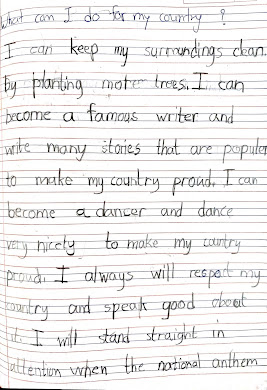 What can I do for my country ?
I can keep my surroundings clean.
by planting more trees. I can
become a famous writer and
write many stories that are popular
to make my country proud. I can
become a dancer and dance
very nicely to make my country
proud. I always will respect my
country and speak good about
it. I will stand straight in
attention when the national anthem